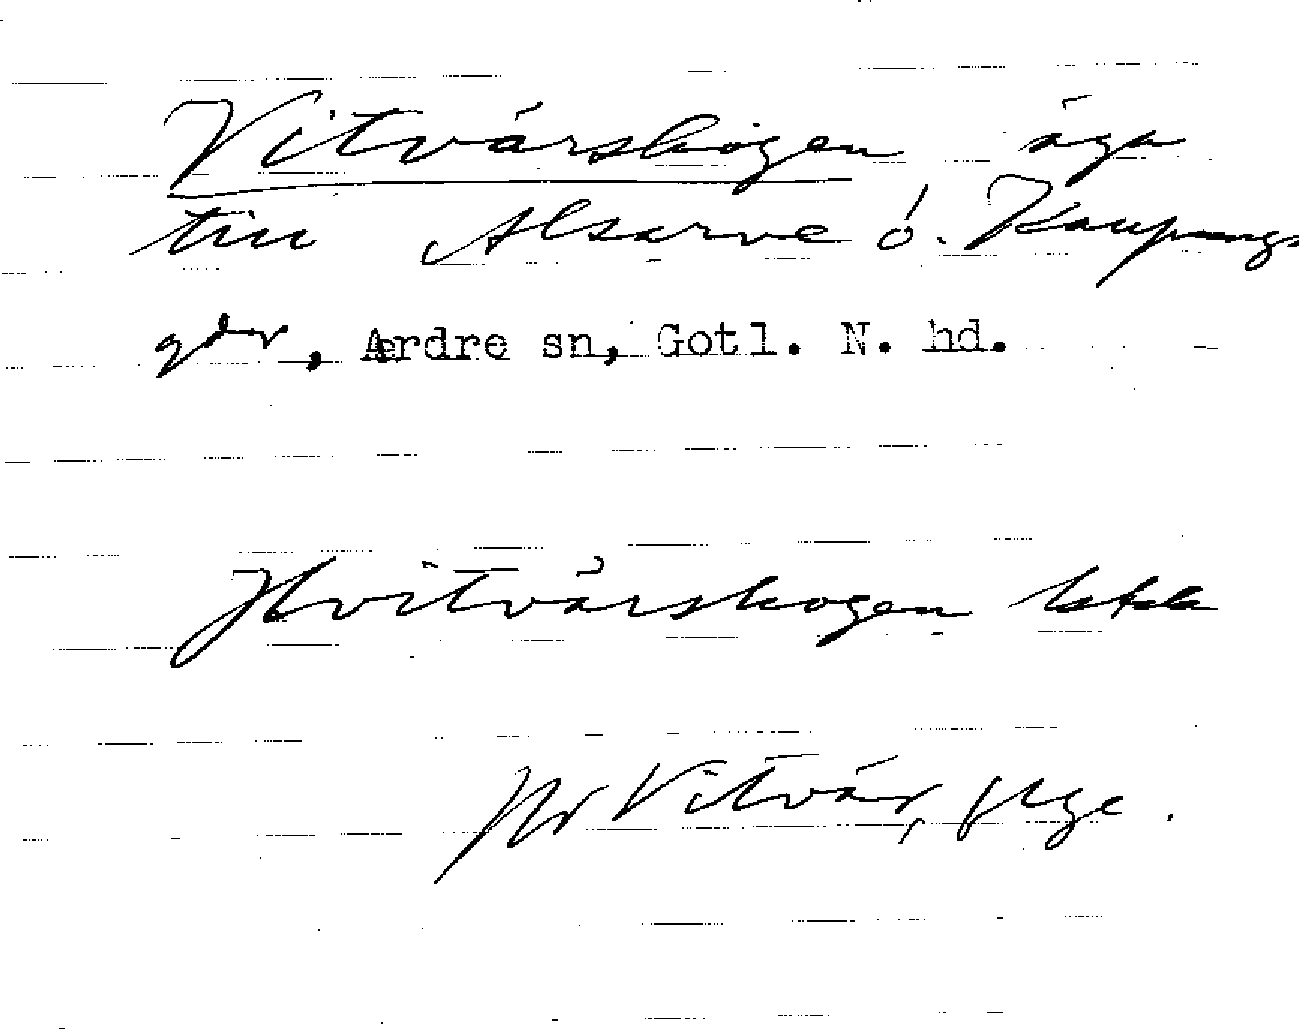 Vitvärskogen äga
till Alsarve o. Kaupungs
gdar, Ardre sn, Gotl. N. hd.
Hvitvärskogen
jfr Vitvär,